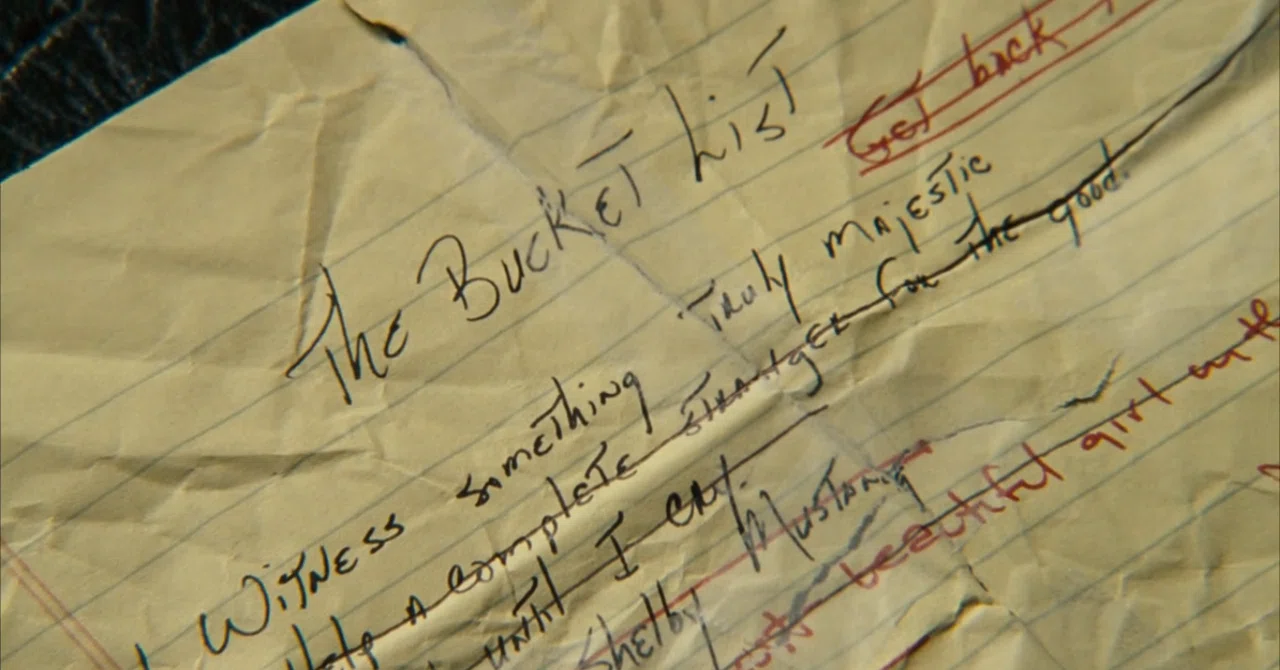 The Bucket List
Get back
Witness something truly majestic
Help a complete stranger for the good.
until I cry.
Shelby Mustang
beautiful girl